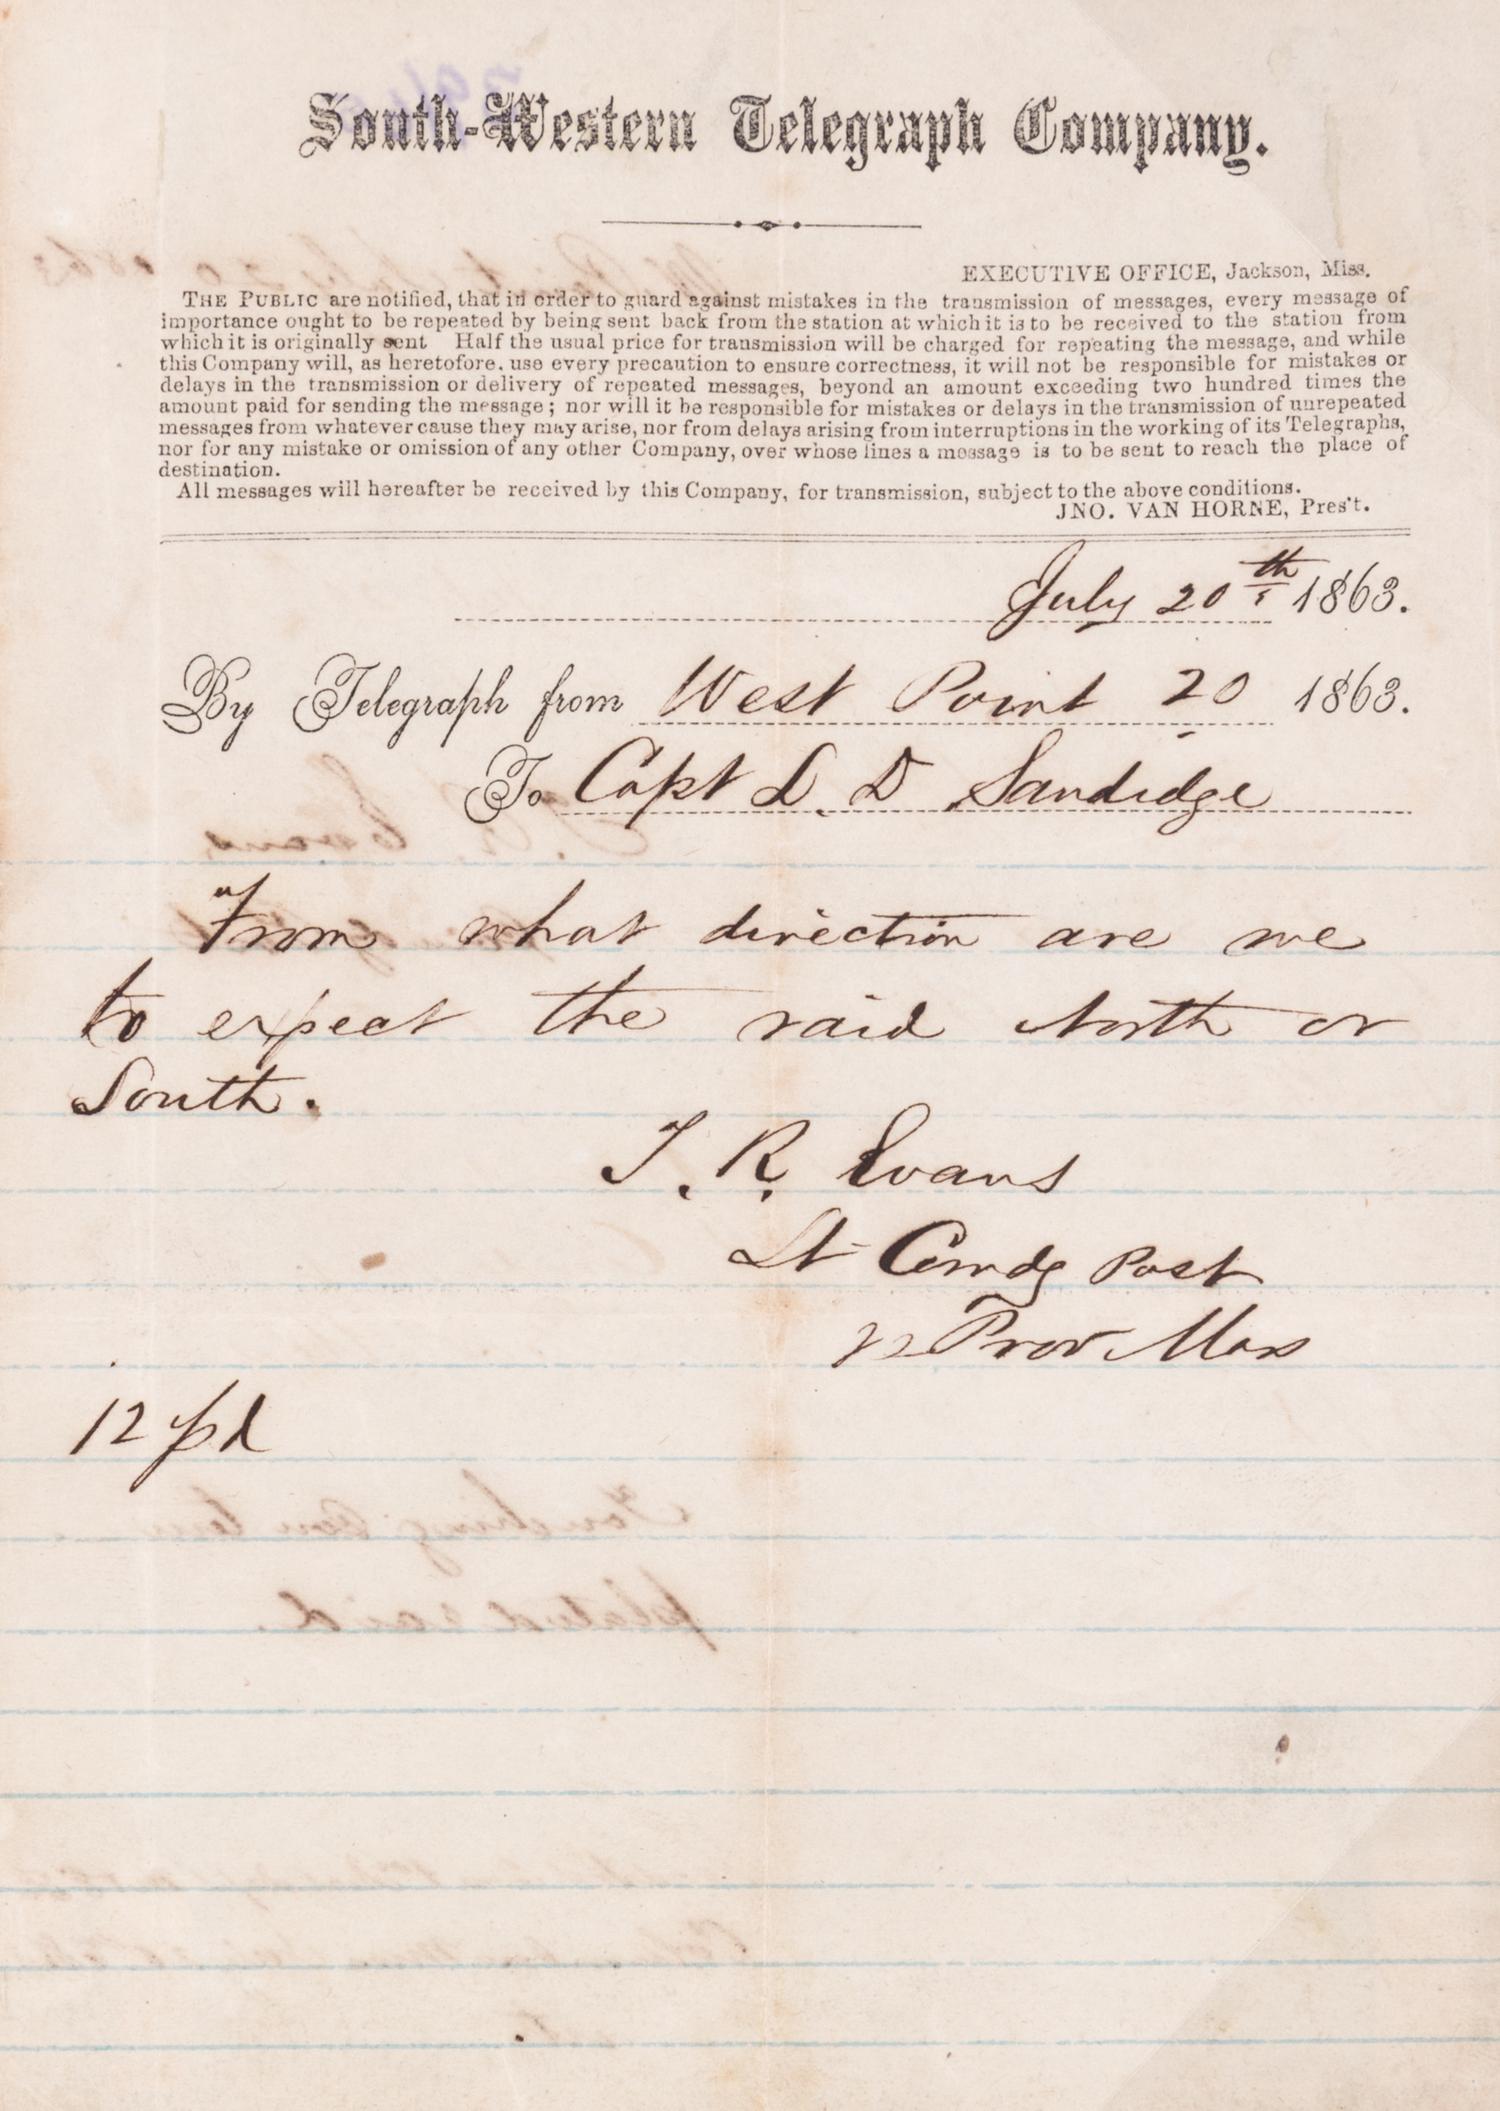 South-Western Telegraph Company.
EXECUTIVE OFFICE, Jackson, Miss.
THE PUBLIC are notified, that in order to guard against mistakes in the transmission of messages, every message of
importance ought to be repeated by being sent back from the station at which it is to be received to the station from
which it is originally sent Half the usual price for transmission will be charged for repeating the message, and while
this Company will, as heretofore, use every precaution to ensure correctness, it will not be responsible for mistakes or
delays in the transmission or delivery of repeated messages, beyond an amount exceeding two hundred times the
amount paid for sending the message; nor will it be responsible for mistakes or delays in the transmission of unrepeated
messages from whatever cause they may arise, nor from delays arising from interruptions in the working of its Telegraphs,
nor for any mistake or omission of any other Company, over whose lines a message is to be sent to reach the place of
destination.
All messages will hereafter be received by this Company, for transmission, subject to the above conditions.
JNO. VAN HORNE, Pres't.
July 20th 1863.
By Telegraph from West Point 20 1863.
To Capt L. D Sandidge
From what direction are we
to expect the raid North or
South.
T. R. Evans
Lt Comdg Post
Prov Mar
12 pd